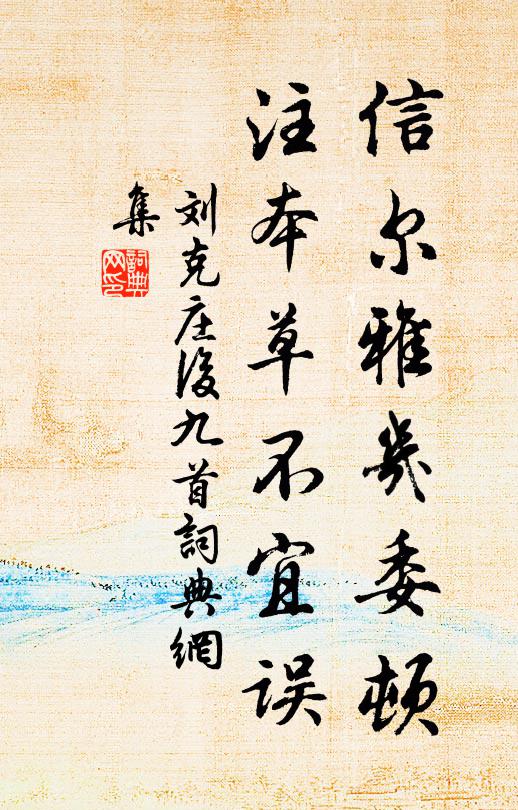 信尔雅几委顿
注本草不宜误
刘克庄后九首詞典網
集
詞典网印